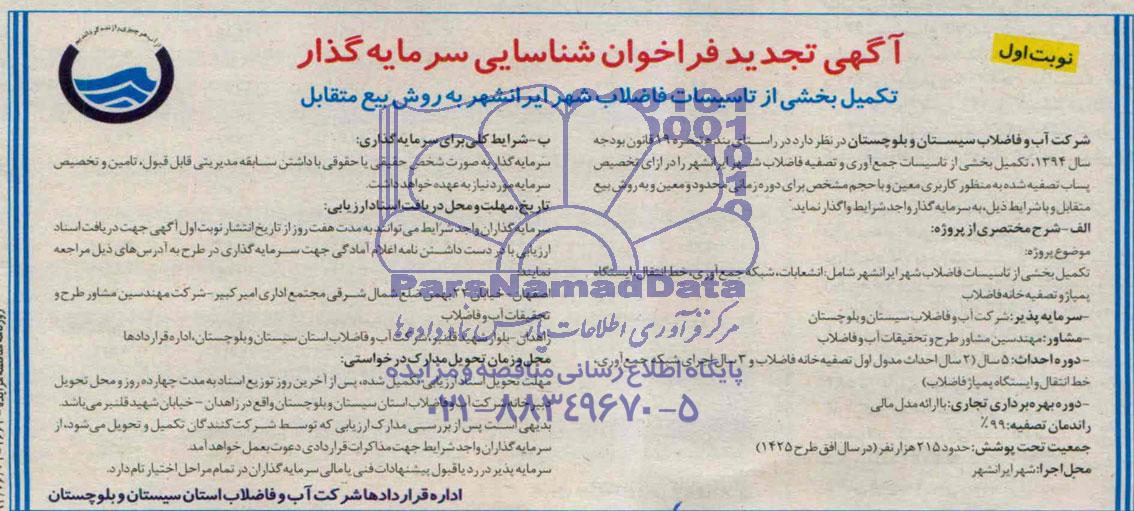 نوبت اول
آگهی تجدید فراخوان شناسایی سرمایه گذار
تکمیل بخشی از تاسیسات فاضلاب شهر ایرانشهر به روش بیع متقابل
شرکت آب و فاضلاب سیستان و بلوچستان در نظر دارد در راستای بند ه تبصره ۱۹ قانون بودجه
سال ۱۳۹۴، تکمیل بخشی از تاسیسات جمع آوری و تصفیه فاضلاب شهر ایرانشهر را در ازای تخصیص
پساب تصفیه شده به منظور کاربری معین و با حجم مشخص برای دوره زمانی محدود و معین و به روش بیع
متقابل و با شرایط ذیل، به سرمایه گذار واجد شرایط واگذار نماید.
الف- شرح مختصری از پروژه:
موضوع پروژه:
تکمیل بخشی از تاسیسات فاضلاب شهر ایرانشهر شامل: انشعابات، شبکه جمع آوری، خط انتقال، ایستگاه
پمپاژ و تصفیه خانه فاضلاب
-سرمایه پذیر: شرکت آب و فاضلاب سیستان و بلوچستان
-مشاور: مهندسین مشاور طرح و تحقیقات آب و فاضلاب
-دوره احداث: ۵ سال (۲ سال احداث مدول اول تصفیه خانه فاضلاب و ۳ سال اجرای شبکه جمع آوری،
خط انتقال و ایستگاه پمپاژ فاضلاب)
-دوره بهره برداری تجاری: با ارائه مدل مالی
راندمان تصفیه: ۹۹٪
جمعیت تحت پوشش: حدود ۲۱۵ هزار نفر (در سال افق طرح ۱۴۲۵)
محل اجرا: شهر ایرانشهر
ب- شرایط کلی برای سرمایه گذاری:
سرمایه گذار به صورت شخص حقیقی یا حقوقی با داشتن سابقه مدیریتی قابل قبول، تامین و تخصیص
سرمایه مورد نیاز به عهده خواهد داشت.
تاریخ، مهلت و محل دریافت اسناد ارزیابی:
سرمایه گذاران واجد شرایط می توانند به مدت هفت روز از تاریخ انتشار نوبت اول آگهی جهت دریافت اسناد
ارزیابی با در دست داشتن نامه اعلام آمادگی جهت سرمایه گذاری در طرح به آدرس های ذیل مراجعه
نمایند:
اصفهان- خیابان ۲۲ بهمن ضلع شمال شرقی مجتمع اداری امیر کبیر- شرکت مهندسین مشاور طرح و
تحقیقات آب و فاضلاب
زاهدان- بلوار شهید قلنبر، شرکت آب و فاضلاب استان سیستان و بلوچستان، اداره قراردادها
محل و زمان تحویل مدارک درخواستی:
مهلت تحویل اسناد ارزیابی تکمیل شده، پس از آخرین روز توزیع اسناد به مدت چهارده روز و محل تحویل
دبیرخانه شرکت آب و فاضلاب استان سیستان و بلوچستان واقع در زاهدان- خیابان شهید قلنبر می باشد.
بدیهی است پس از بررسی مدارک ارزیابی که توسط شرکت کنندگان تکمیل و تحویل می شود، از
سرمایه گذاران واجد شرایط جهت مذاکرات قراردادی دعوت بعمل خواهد آمد.
سرمایه پذیر در رد یا قبول پیشنهادات فنی یا مالی سرمایه گذاران در تمام مراحل اختیار تام دارد.
اداره قراردادها شرکت آب و فاضلاب استان سیستان و بلوچستان
ParsNamadData
مرکز فرآوری اطلاعات پارس نماد داده ها
پایگاه اطلاع رسانی مناقصه و مزایده
۰۲۱-۸۸۳۴۹۶۷۰-۵